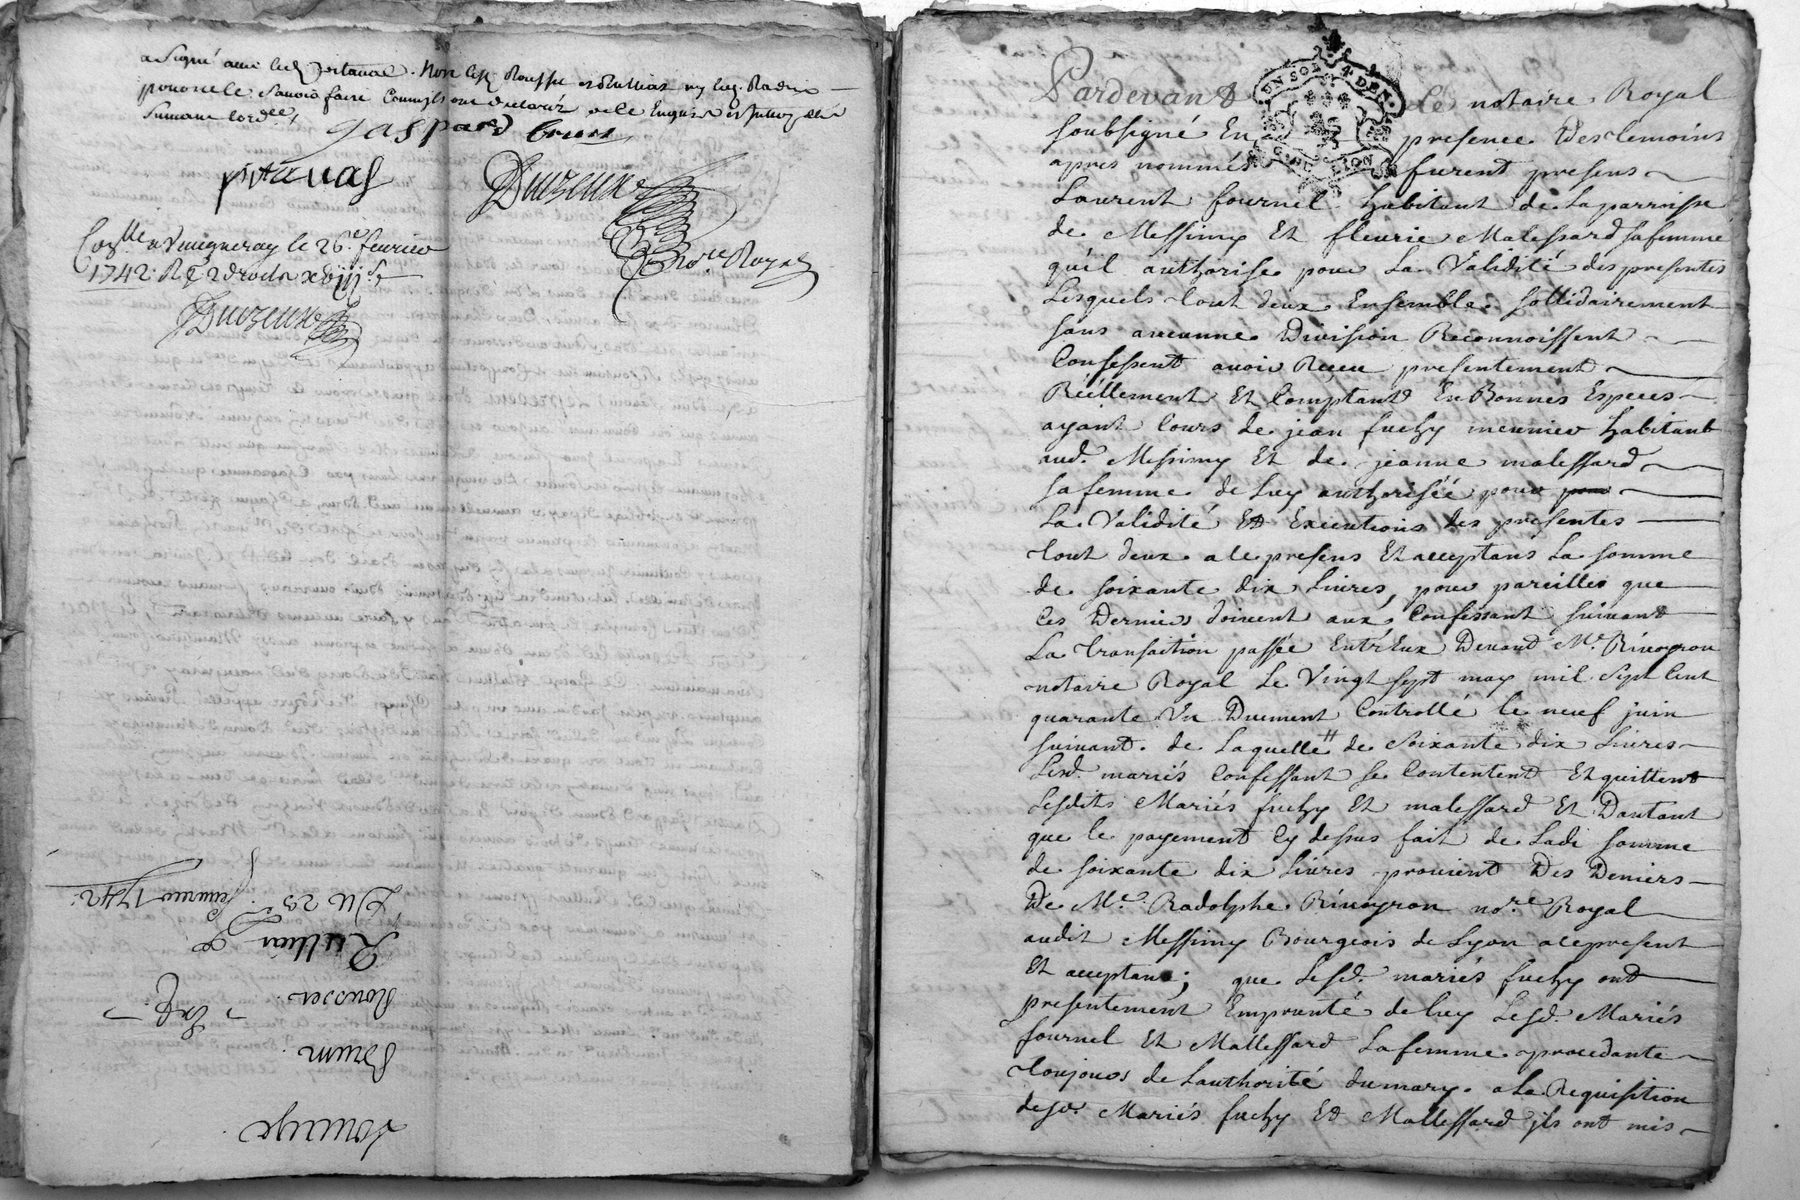 a signé avec led pitaval. Non lesd Rousset et Rullias ny led.
pour ne le Scavoir faire Enquis
Suivant lord.ce,
gaspard brun
pitaval
Duvzeux
No.re Royal
Con.llé a Vaugneray le 26.e fevrier
1742. R
Duvzeux
Louage
Brun
Rousset
Rullias
Du 25.e
fevrier 1742.
UN SOL 4 DEN.
G. LYON
Pardevant Le notaire Royal
soubsigné En presence Des temoins
apres nommés furent presens
Laurent fournel habitant de La parroisse
de Messimy Et fleurie Malessard sa femme
qu'il authorise pour La Validité des presentes
Lesquels tout deux Ensemble sollidairement
sans aucunne Division Reconnoissent
Confessent avoir Reçeu presentement
Réellement Et Comptant En Bonnes Especes
ayant Cours de jean fuchy meunier habitant
aud. Messimy Et de jeanne malessard
sa femme de luy authorisée pour pour
La Validité Et Executions des presentes
tout deux a ce presens Et acceptans La somme
de soixante dix Livres, pour pareilles que
Ces Derniers doivent aux Confessant suivant
La transaction passée Entr'Eux Devant M.e Rivoyron
notaire Royal Le Vingt sept may mil sept Cent
quarante Un Duement Controllé le neuf juin
suivant. de Laquelle de Soixante dix Livres
Lesd. mariés Confessant se Contentent Et quittent
Lesdits Mariés fuchy Et malessard Et Dautant
que le payement Cy dessus fait de Ladi somme
de soixante dix Livres provient Des Deniers
De M.e Radolphe Rivoyron no.re Royal
audit Messimy Bourgeois de Lyon a ce present
Et acceptant; que Lesd. mariés fuchy ont
presentement Emprunté de luy Lesd. Mariés
fournel Et Mallessard La femme procedante
toujours de Lauthorité du mary. a La Requisition
desd. Mariés fuchy Et Mallessard ils ont mis